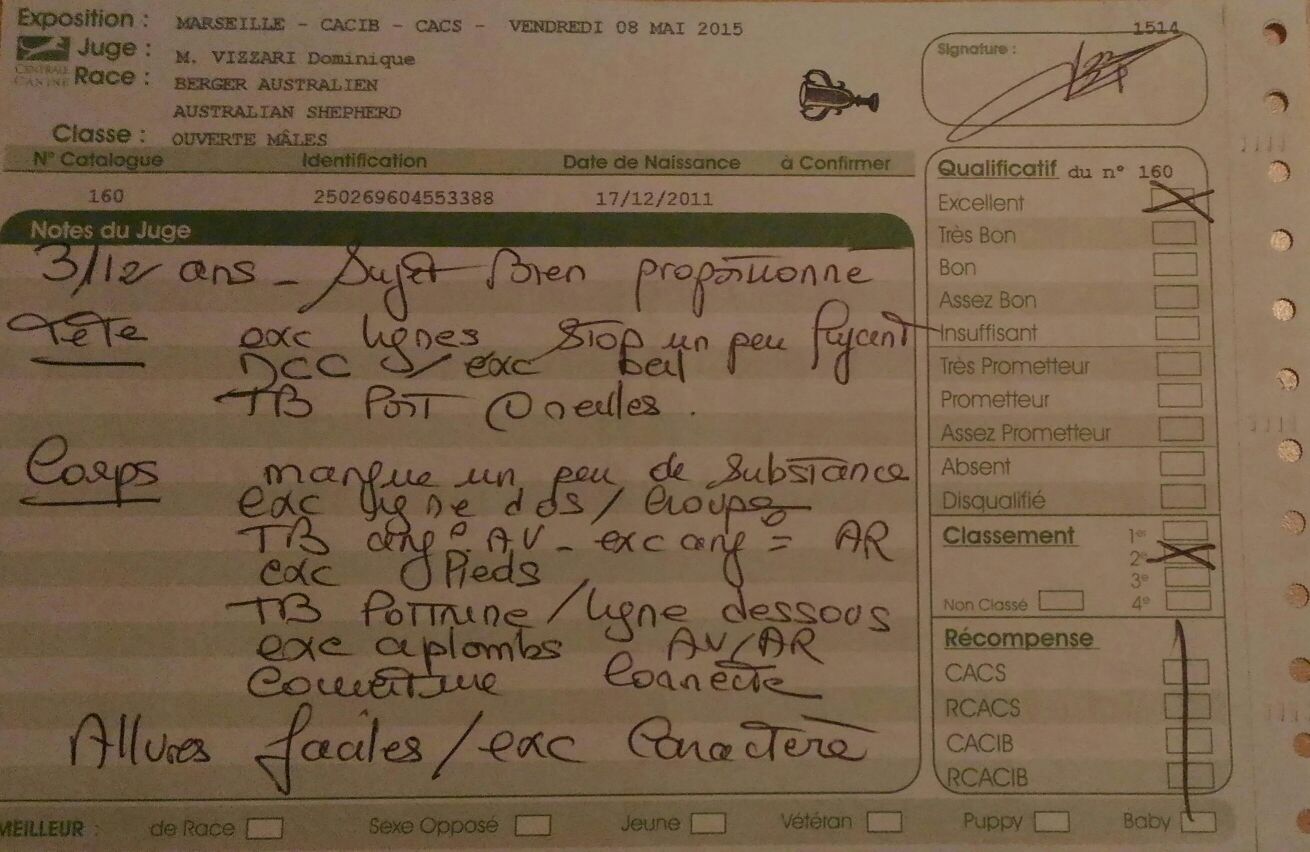 Exposition : MARSEILLE - CACIB - CACS - VENDREDI 08 MAI 2015
1514
Juge : M. VIZZARI Dominique
CENTRALE CANINE
Race : BERGER AUSTRALIEN
AUSTRALIAN SHEPHERD
Classe : OUVERTE MÂLES
Signature :
N° Catalogue Identification Date de Naissance à Confirmer
160 250269604553388 17/12/2011
Notes du Juge
3/12 ans - Sujet Bien proportionne
Tête exc lignes Stop un peu fuyant
DCC / exc
TB Port Oreilles.
Corps manque un peu de Substance
exc ligne dos / Croupe
TB ang° AV - exc ang = AR
exc Pieds
TB Poitrine / ligne dessous
exc aplombs AV/AR
Couverture Correcte
Allures faciles / exc Caractère
Qualificatif du n° 160
Excellent
Très Bon
Bon
Assez Bon
Insuffisant
Très Prometteur
Prometteur
Assez Prometteur
Absent
Disqualifié
Classement 1er
2e
3e
Non Classé 4e
Récompense
CACS
RCACS
CACIB
RCACIB
MEILLEUR : de Race Sexe Opposé Jeune Vétéran Puppy Baby